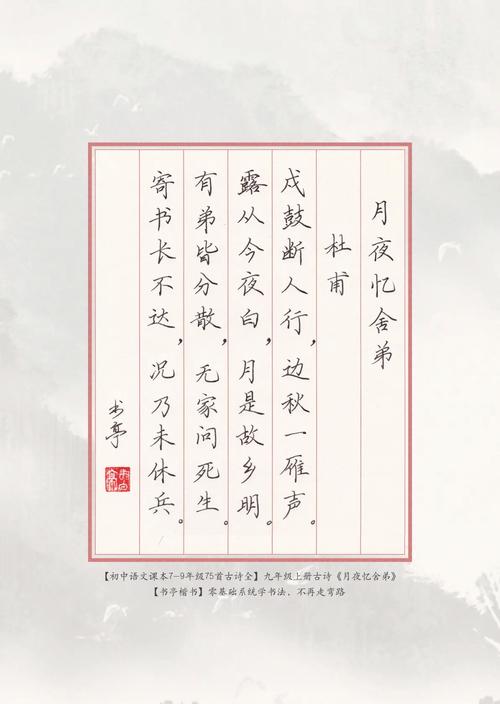 月夜忆舍弟
杜甫
戍鼓断人行，边秋一雁声。
露从今夜白，月是故乡明。
有弟皆分散，无家问死生。
寄书长不达，况乃未休兵。
书亭
【初中语文课本7-9年级75首古诗全】九年级上册古诗《月夜忆舍弟》
【书亭楷书】零基础系统学书法，不再走弯路